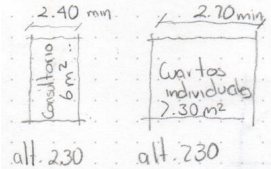 2.40 min
Consultorio
6 m² ...
alt. 2.30
2.70 min.
Cuartos
individuales
7.30 m²
alt. 230